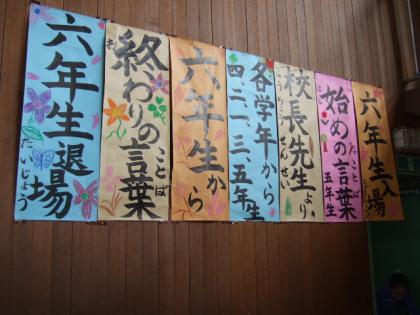 六年生入場
始めの言葉
ことば
五年生
校長先生より
こうちょう
せんせい
各学年から
四、二、一、三、五年生
六年生から
終わりの言葉
お
ことば
六年生退場
たいじょう